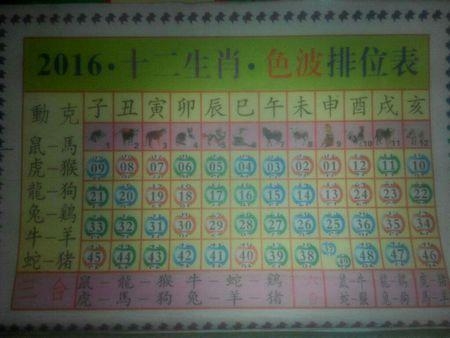 2016·十二生肖·色波排位表
動 克 子 丑 寅 卯 辰 巳 午 未 申 酉 戌 亥
鼠–馬 1 2 3 4 5 6 7 8 9 10 11 12
虎–猴 09 08 07 06 05 04 03 02 01 12 11 10
龍–狗 21 20 19 18 17 16 15 14 13 24 23 22
兔–鷄 33 32 31 30 29 28 27 26 25 36 35 34
牛–羊
蛇–猪 45 44 43 42 41 40 39 38 48 47 46
合 鼠–龍–猴 牛–蛇–鷄 合 鼠–牛 龍–鷄 虎–猪
虎–馬–狗 兔–羊–猪 蛇–猴 兔–狗 馬–羊